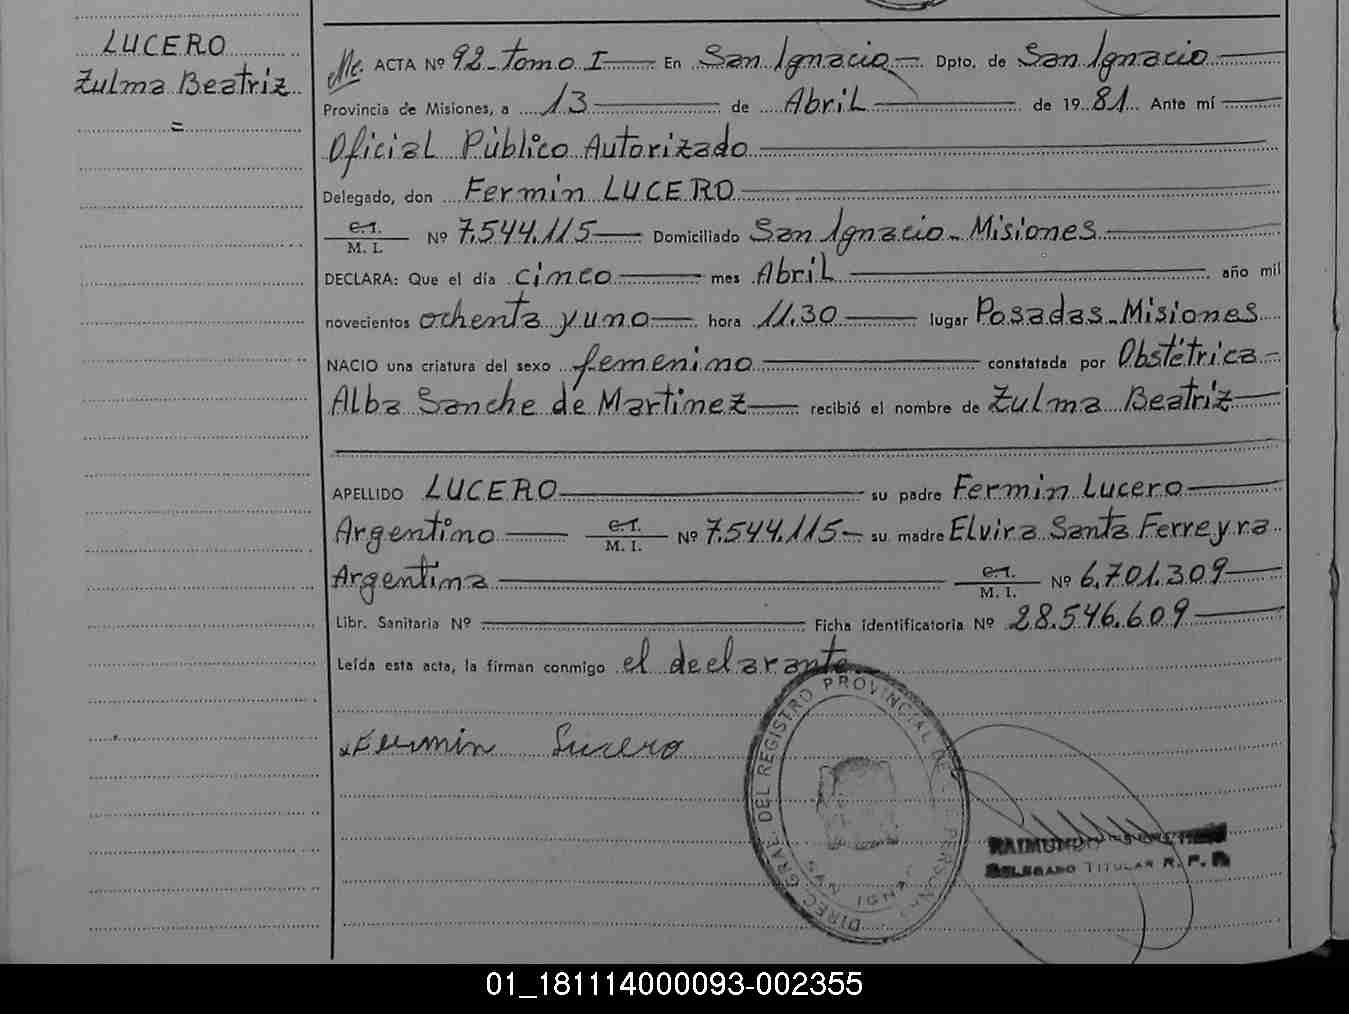 LUCERO
Zulma Beatriz
=
ACTA Nº 92 - tomo I En San Ignacio Dpto. de San Ignacio
Provincia de Misiones, a 13 de Abril de 1981 Ante mí
Oficial Público Autorizado
Delegado, don Fermin LUCERO
C.I.
M. I. Nº 7.544.115 Domiciliado San Ignacio - Misiones
DECLARA: Que el día cinco mes Abril año mil
novecientos ochenta y uno hora 11.30 lugar Posadas - Misiones
NACIO una criatura del sexo femenino constatada por Obstétrica
Alba Sanche de Martinez recibió el nombre de Zulma Beatriz
APELLIDO LUCERO su padre Fermin Lucero
Argentino C.I. M. I. Nº 7.544.115 su madre Elvira Santa Ferreyra
Argentina C.I. M. I. Nº 6.701.309
Libr. Sanitaria Nº Ficha identificatoria Nº 28.546.609
Leída esta acta, la firman conmigo el declarante
Fermin Lucero
DIREC. GRAL. DEL REGISTRO PROVINCIAL DE LAS PERSONAS
SAN IGNACIO
RAIMUNDO
DELEGADO TITULAR R. P. P.
01_181114000093-002355